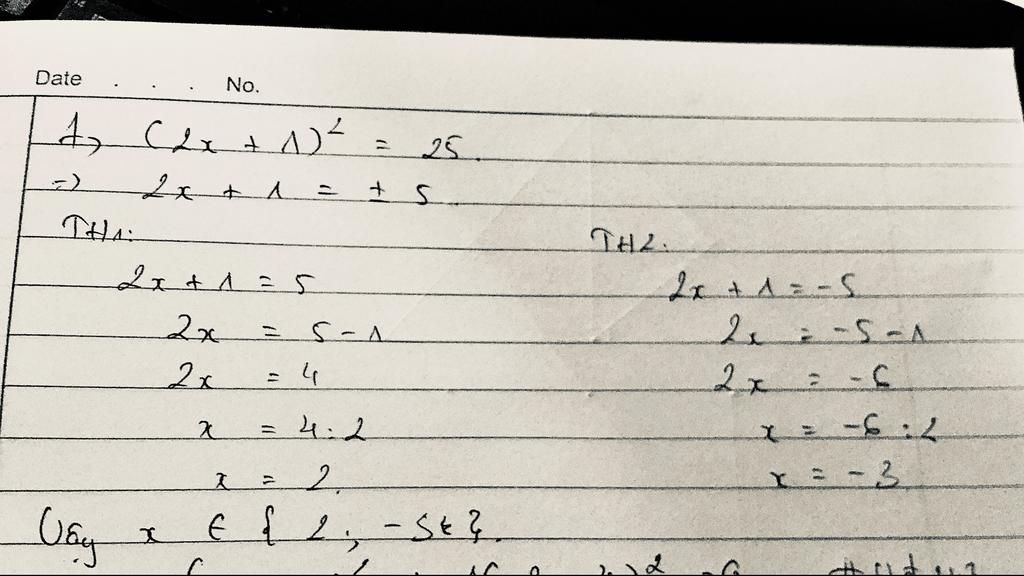 Date . . . No.
1, (2x + 1)² = 25.
=> 2x + 1 = ± 5
TH1:
2x + 1 = 5
2x = 5 - 1
2x = 4
x = 4 : 2
x = 2.
TH2.
2x + 1 = -5
2x = -5 - 1
2x = -6
x = -6 : 2
x = -3
Vậy x ∈ { 2 ; -